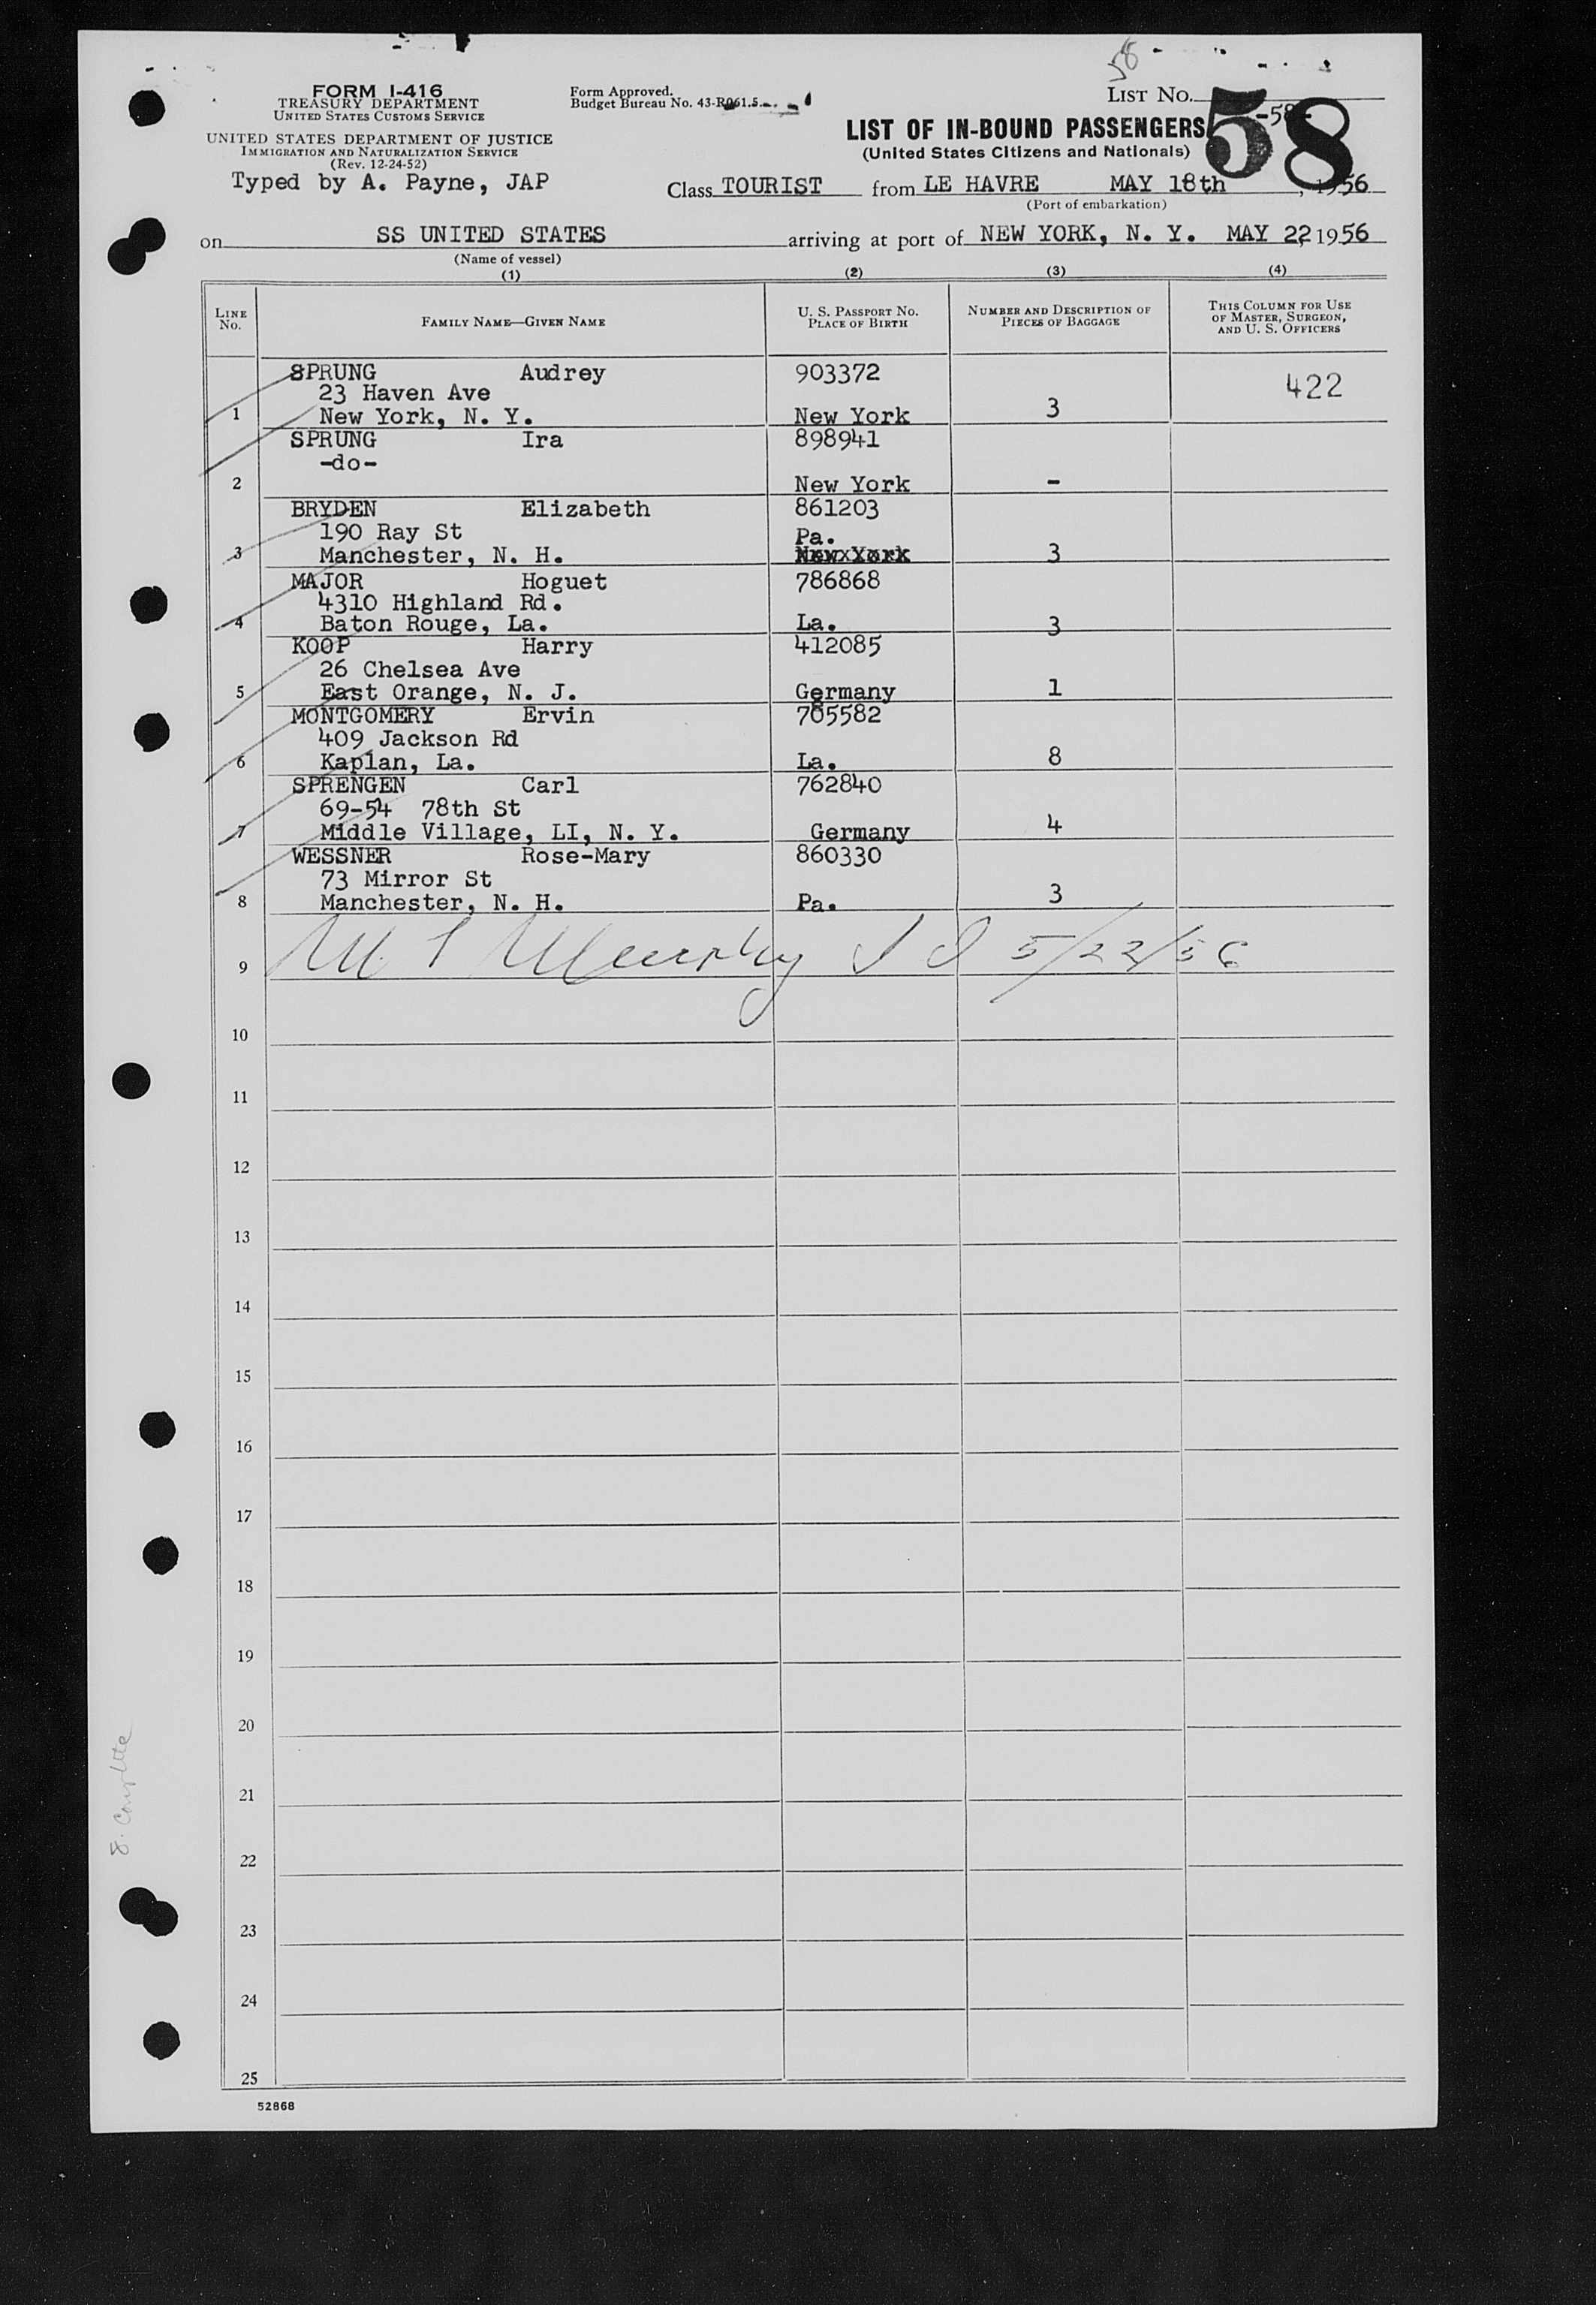 58
FORM I-416
TREASURY DEPARTMENT
UNITED STATES CUSTOMS SERVICE
UNITED STATES DEPARTMENT OF JUSTICE
IMMIGRATION AND NATURALIZATION SERVICE
(Rev. 12-24-52)
Typed by A. Payne, JAP
Form Approved.
Budget Bureau No. 43-R061.5
LIST NO. -58-
58
LIST OF IN-BOUND PASSENGERS
(United States Citizens and Nationals)
Class TOURIST from LE HAVRE MAY 18th, 1956
(Port of embarkation)
on SS UNITED STATES arriving at port of NEW YORK, N. Y. MAY 22, 1956
(Name of vessel)
(1) (2) (3) (4)
LINE NO. FAMILY NAME—GIVEN NAME U. S. PASSPORT NO. PLACE OF BIRTH NUMBER AND DESCRIPTION OF PIECES OF BAGGAGE THIS COLUMN FOR USE OF MASTER, SURGEON, AND U. S. OFFICERS
SPRUNG Audrey 903372 422
23 Haven Ave
1 New York, N. Y. New York 3
SPRUNG Ira 898941
-do-
2 New York -
BRYDEN Elizabeth 861203
190 Ray St Pa.
3 Manchester, N. H. NewxYork 3
MAJOR Hoguet 786868
4310 Highland Rd.
4 Baton Rouge, La. La. 3
KOOP Harry 412085
26 Chelsea Ave
5 East Orange, N. J. Germany 1
MONTGOMERY Ervin 705582
409 Jackson Rd
6 Kaplan, La. La. 8
SPRENGEN Carl 762840
69-54 78th St
7 Middle Village, LI, N. Y. Germany 4
WESSNER Rose-Mary 860330
73 Mirror St
8 Manchester, N. H. Pa. 3
9 Murphy 5/22/56
10
11
12
13
14
15
16
17
18
19
20
21
22
23
24
25
52868